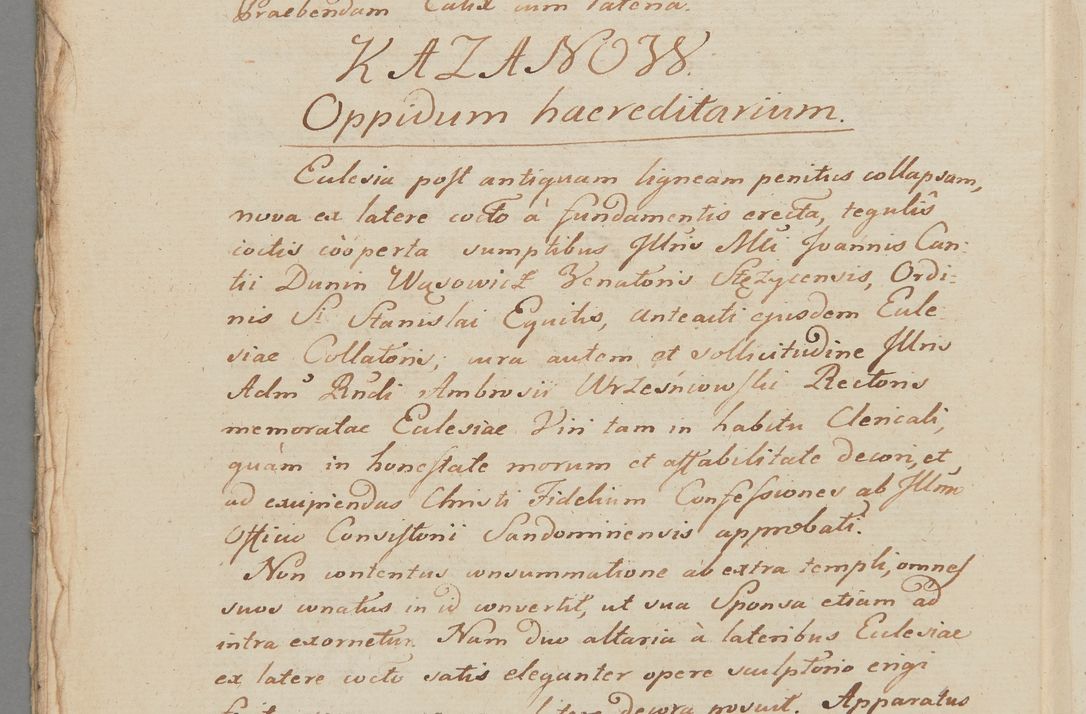 Praebendam Calix cum Patena.
KAZANOW.
Oppidum haereditarium.
Eclesia post antiquam ligneam penitus collapsam,
nova ex latere cocto à fundamentis erecta, tegulis
coctis coòperta sumptibus Jllris Mci Joannis Can-
tii Dunin Wąsowicz Venatoris Stężycensis, Ordi-
nis Si Stanislai Equitis, anteacti ejusdem Ecle-
siae Collatoris; cura autem et sollicitudine Jllris
Admi Rndi Ambrosii Wrześniowski Rectoris
memoratae Eclesiae Viri tam in habitu Clericali,
quàm in honestate morum et affabilitate decori, et
ad excipiendas Christi Fidelium Confessiones ab Jllmo
Officio Consistorii Sandomiriensis approbati.
Non contentus consummatione ab extra templi, omnes
suos conatus in id convertit, ut sua Sponsa etiam ad
intra exornetur. Nam duo altaria à lateribus Eclesiae
ex latere cocto satis eleganter opere sculptorio erigi
decora posuit. Apparatus